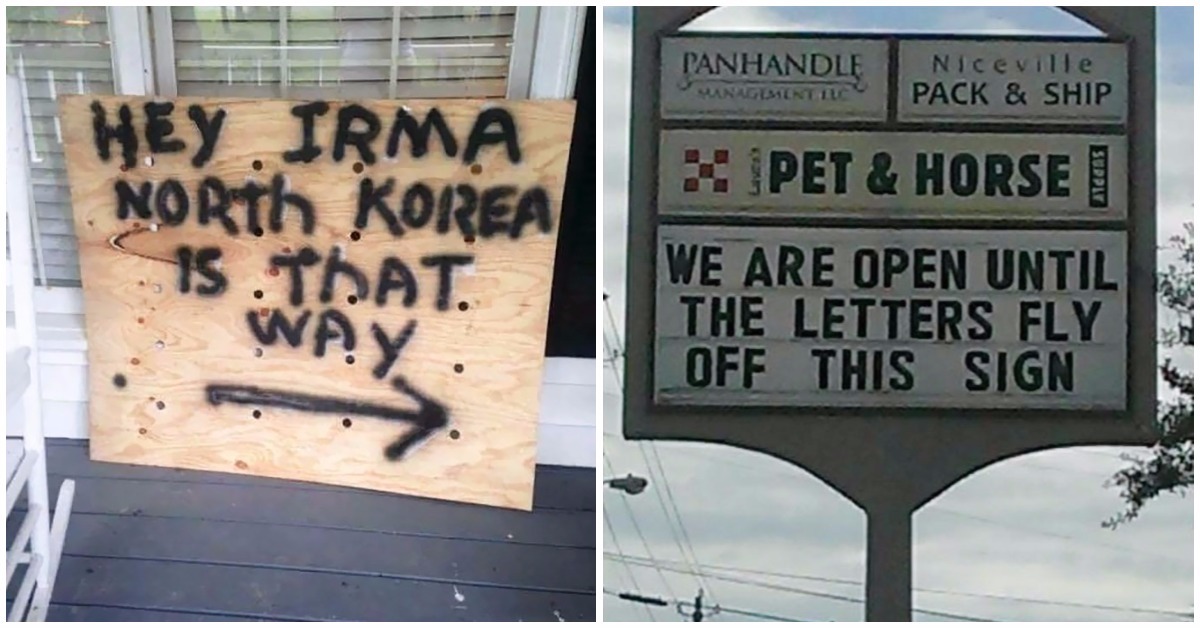 HEY IRMA
NORTH KOREA
IS THAT
WAY
PANHANDLE
MANAGEMENT LLC
Niceville
PACK & SHIP
PET & HORSE
SUPPLY
WE ARE OPEN UNTIL
THE LETTERS FLY
OFF THIS SIGN